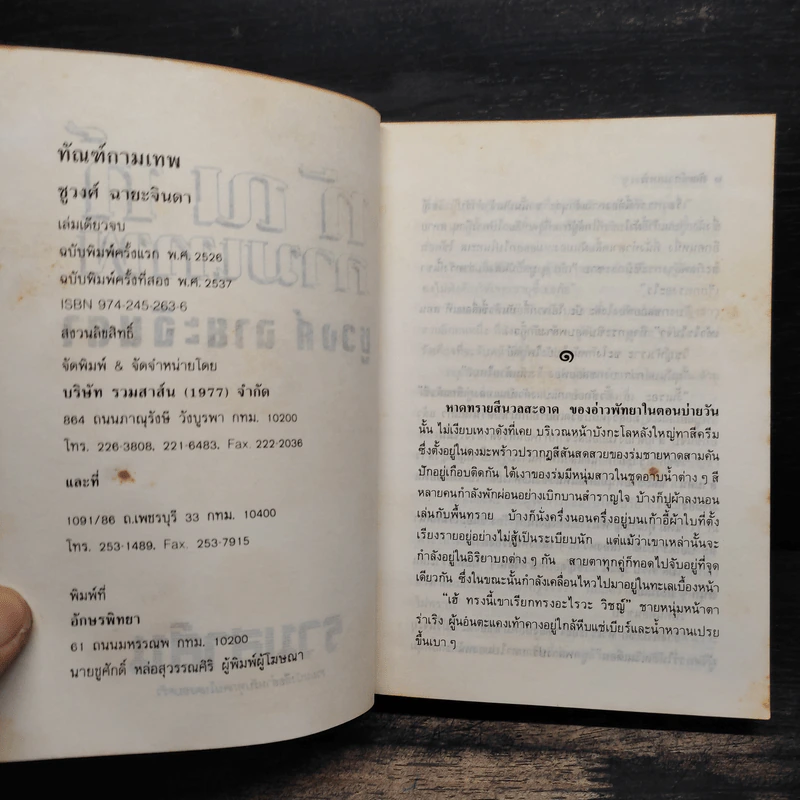 ทัณฑ์กามเทพ
ชูวงศ์ ฉายะจินดา
เล่มเดียวจบ
ฉบับพิมพ์ครั้งแรก พ.ศ. 2526
ฉบับพิมพ์ครั้งที่สอง พ.ศ. 2537
ISBN 974-245-263-6
สงวนลิขสิทธิ์
จัดพิมพ์ & จัดจำหน่ายโดย
บริษัท รวมสาส์น (1977) จำกัด
864 ถนนภาณุรังษี วังบูรพา กทม. 10200
โทร. 226-3808, 221-6483, Fax. 222-2036
และที่
1091/86 ถ.เพชรบุรี 33 กทม. 10400
โทร. 253-1489, Fax. 253-7915
พิมพ์ที่
อักษรพิทยา
61 ถนนมหรรณพ กทม. 10200
นายชูศักดิ์ หล่อสุวรรณศิริ ผู้พิมพ์ผู้โฆษณา
๑
หาดทรายสีนวลสะอาด ของอ่าวพัทยาในตอนบ่ายวัน
นั้น ไม่เงียบเหงาดังที่เคย บริเวณหน้าบังกะโลหลังใหญ่ทาสีครีม
ซึ่งตั้งอยู่ในดงมะพร้าวปรากฏสีสันสดสวยของร่มชายหาดสามคัน
ปักอยู่เกือบติดกัน ใต้เงาของร่มมีหนุ่มสาวในชุดอาบน้ำต่าง ๆ สี
หลายคนกำลังพักผ่อนอย่างเบิกบานสำราญใจ บ้างก็ปูผ้าลงนอน
เล่นกับพื้นทราย บ้างก็นั่งครึ่งนอนครึ่งอยู่บนเก้าอี้ผ้าใบที่ตั้ง
เรียงรายอยู่อย่างไม่สู้เป็นระเบียบนัก แต่แม้ว่าเขาเหล่านั้นจะ
กำลังอยู่ในอิริยาบถต่าง ๆ กัน สายตาทุกคู่ก็ทอดไปจับอยู่ที่จุด
เดียวกัน ซึ่งในขณะนั้นกำลังเคลื่อนไหวไปมาอยู่ในทะเลเบื้องหน้า
“เฮ้ ทรงนี้เขาเรียกทรงอะไรวะ วิชญ์” ชายหนุ่มหน้าตา
ร่าเริง ผู้นอนตะแคงเท้าคางอยู่ใกล้หีบแช่เบียร์และน้ำหวานเปรย
ขึ้นเบา ๆ